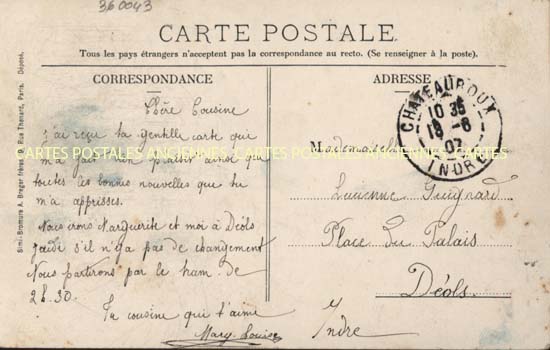 360043
CARTE POSTALE
Tous les pays étrangers n'acceptent pas la correspondance au recto. (Se renseigner à la poste).
CORRESPONDANCE
Chère Cousine
J'ai reçu ta gentille carte qui
m'a fait bien plaisir ainsi que
toutes les bonnes nouvelles que tu
m'a apprises.
Nous irons Marguerite et moi à Déols
jeudi s'il n'y a pas de changement
Nous partirons par le tram de
2h.30.
Ta cousine qui t'aime
Mary Louise
ADRESSE
CHATEAUROUX
10 35
18 -8
07
INDRE
Mademoiselle
Lucienne Guignard
Place du Palais
Déols.
Indre
CARTES POSTALES ANCIENNES CARTES POSTALES ANCIENNES CARTES POSTALES ANCIENNES
Simi-Bromure A. Breger frères, 9, Rue Thénard, Paris. Déposé.